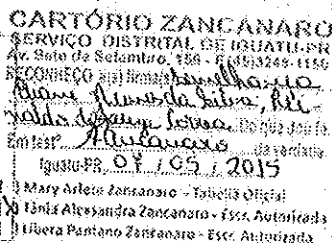 CARTÓRIO ZANCANARO
SERVIÇO DISTRITAL DE IGUATU-PR
Av. Sete de Setembro, 159 - F:(45)3248-1150
RECONHEÇO a(s) firma(s) Semelhança
Nunes da Silva, Rei-
naldo de Souza Correa. Do que dou fé
Em test° da verdade.
Iguatu-PR, 07 / 05 / 2015
Mary Arlete Zancanaro - Tabeliã Oficial
Tânia Alessandra Zancanaro - Escr. Autorizada
Libera Pantano Zancanaro - Escr. Autorizada